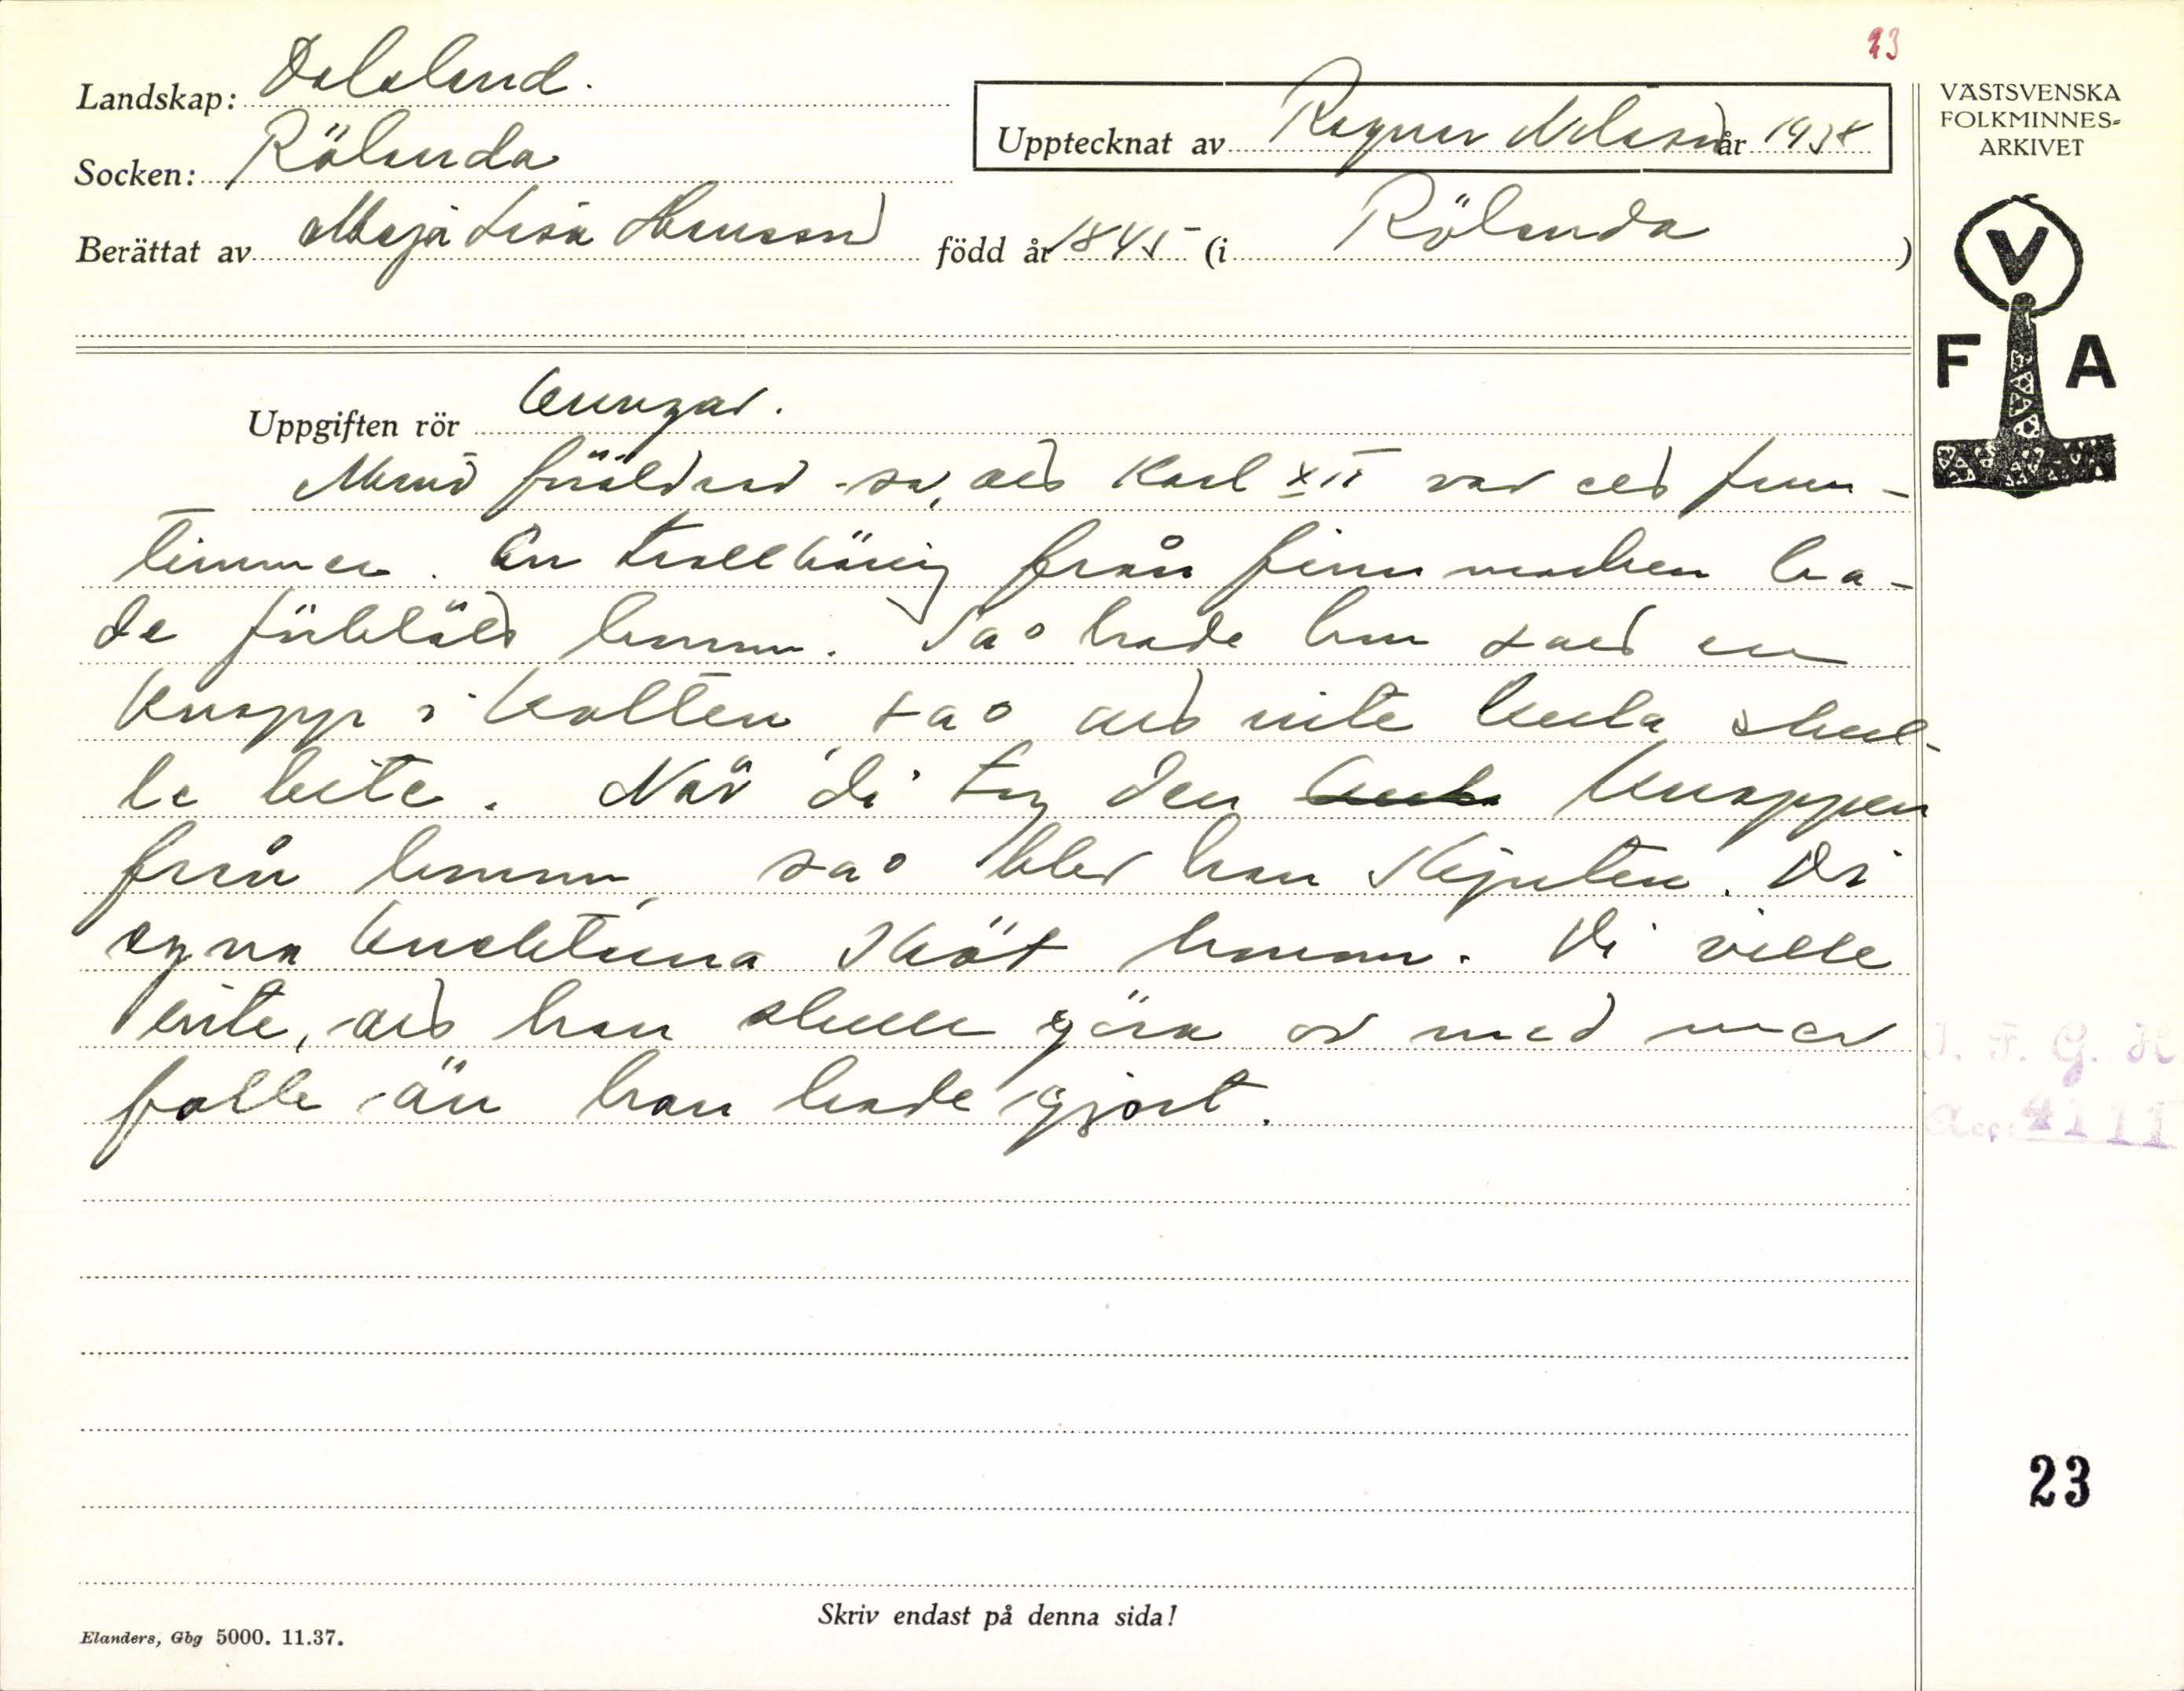 23
Landskap: Dalsland.
Upptecknat av Ragnar Nilsson år 1938
Socken: Rölanda
Berättat av Maja Lisa Hansson född år 1845 (i Rölanda)
VÄSTSVENSKA
FOLKMINNES-
ARKIVET
V
F A
Uppgiften rör Kungar.
Mine föräldrar sa, att Karl XII var ett frun-
timmer. En trollkäring från finnmarken ha-
de förtrollat honom. Så hade han satt en
knapp i kolten, så att inte kula skul-
le bite. När di tog den knappen
från honom, så blev han skjuten. Di
egna knektarna sköt honom. Di ville
inte, att han skulle göra av med mer
folk än han hade gjort.
I. F. G. H
Acc: 4111
23
Skriv endast på denna sida!
Elanders, Gbg 5000. 11.37.